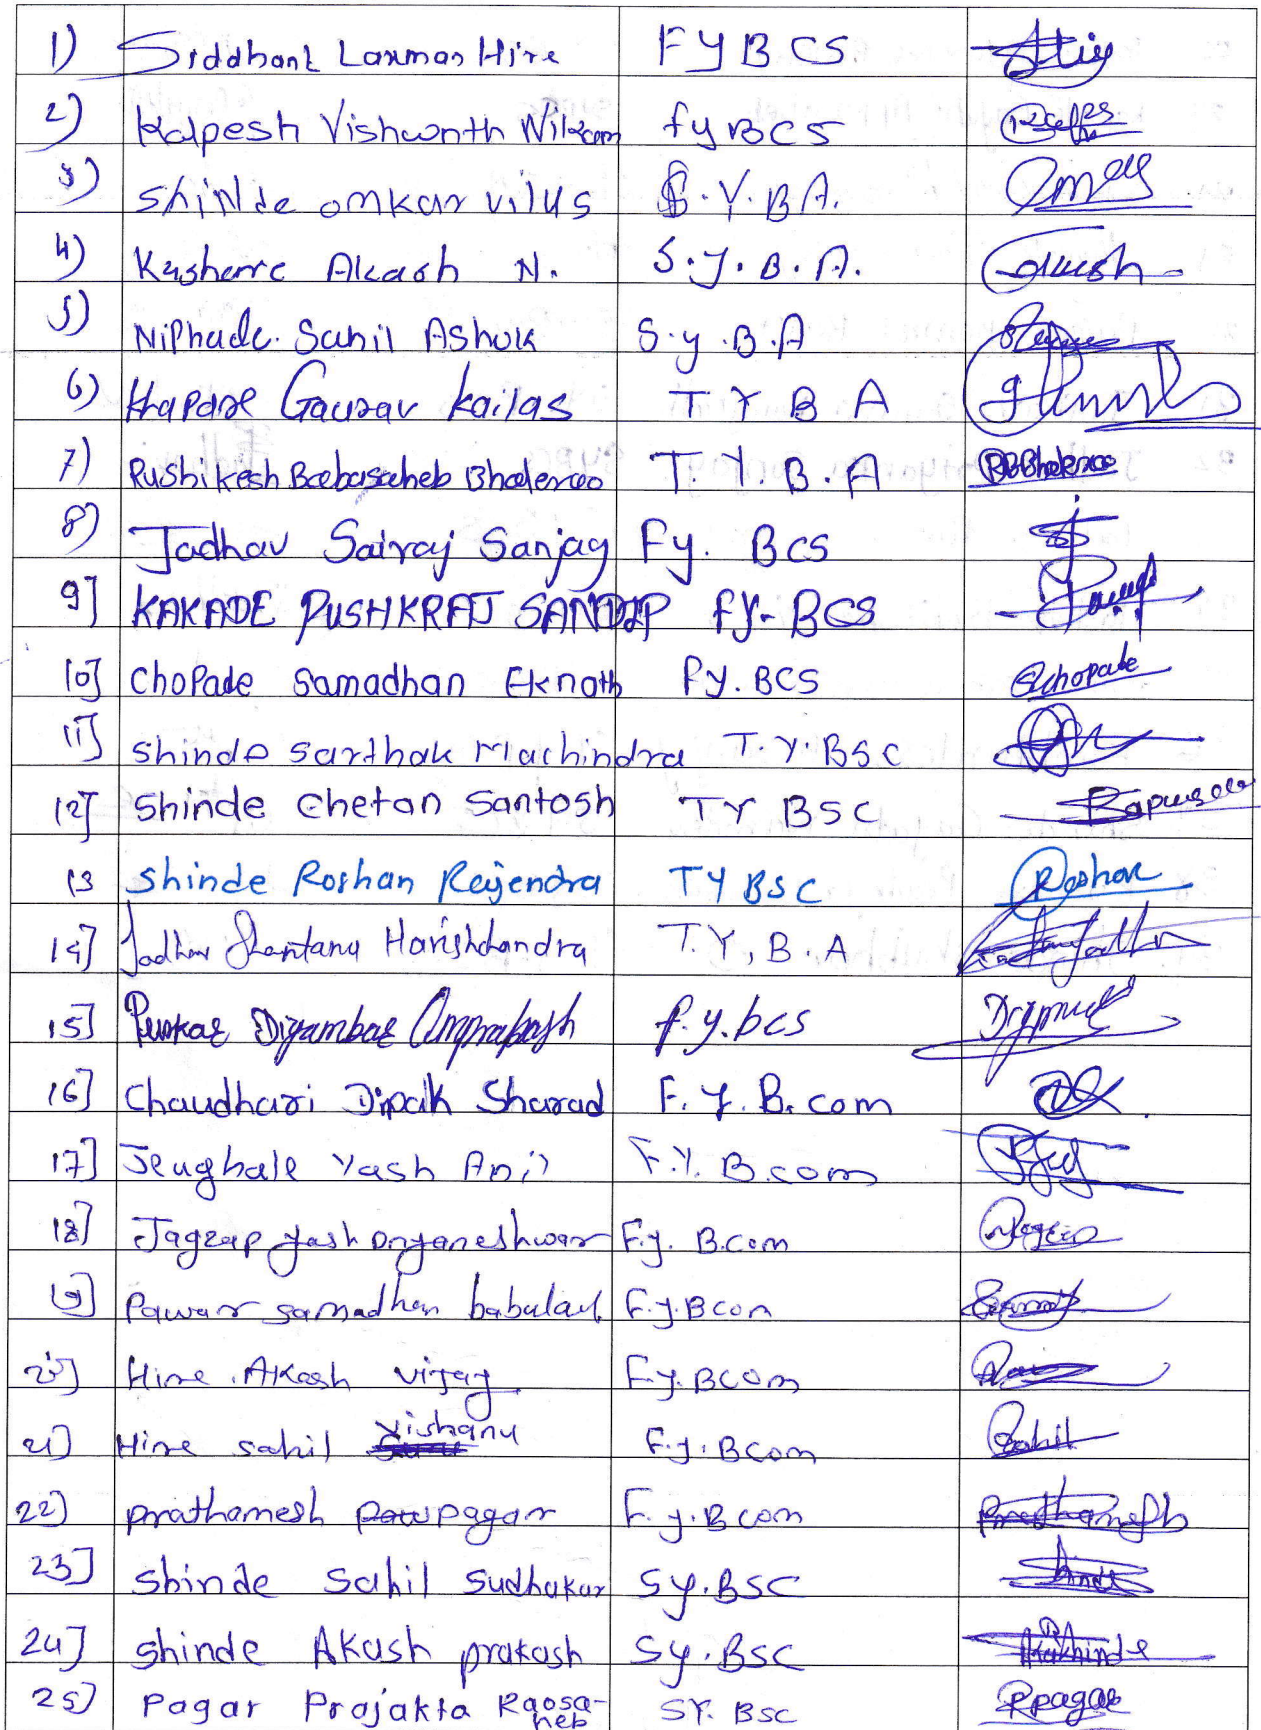 1) Siddhant Laxman Hire FYBCS
2) Kalpesh Vishwanth Nikam fyBCS
3) Shinde omkar vilus S.Y.BA.
4) Akash N. S.Y.B.A.
5) Niphade. Sahil Ashok S.y.B.A
6) Gaurav Kailas T Y B A
7) Rushikesh Babasaheb Bhalerao T.Y.B.A RBBhalerao
8) Jadhav Sairaj Sanjay Fy. BCS
9] KAKADE PUSHKRAJ SANDIP FY-BCS
10] Chopade Samadhan Eknath Fy.BCS Schopade
11] Shinde Sarthak Machindra T.Y.BSC
12] Shinde Chetan Santosh TY BSC
13 Shinde Roshan Rajendra TY BSC Roshan
14] Jadhav Shantanu Harishchandra T.Y,B.A
15] Digambar Omprakash f.y.bcs
16] Chaudhari Dipak Sharad F.Y.B.com
17] Yash Anil F.Y.B.com
18] Jagzap Yash Dnyaneshwar F.y.B.com
19] Pawar samadhan babulal F.y.Bcom
20] Hire.Akash vijay F.y.Bcom
21] Hire sahil Vishanu F.y.Bcom Sahil
22] prathamesh pagar F.y.Bcom Prathamesh
23] Shinde Sahil Sudhakar Sy.BSC
24] Shinde Akash prakash Sy.BSC
25] Pagar Prajakta Raosa-
heb SY.BSC Rpagar